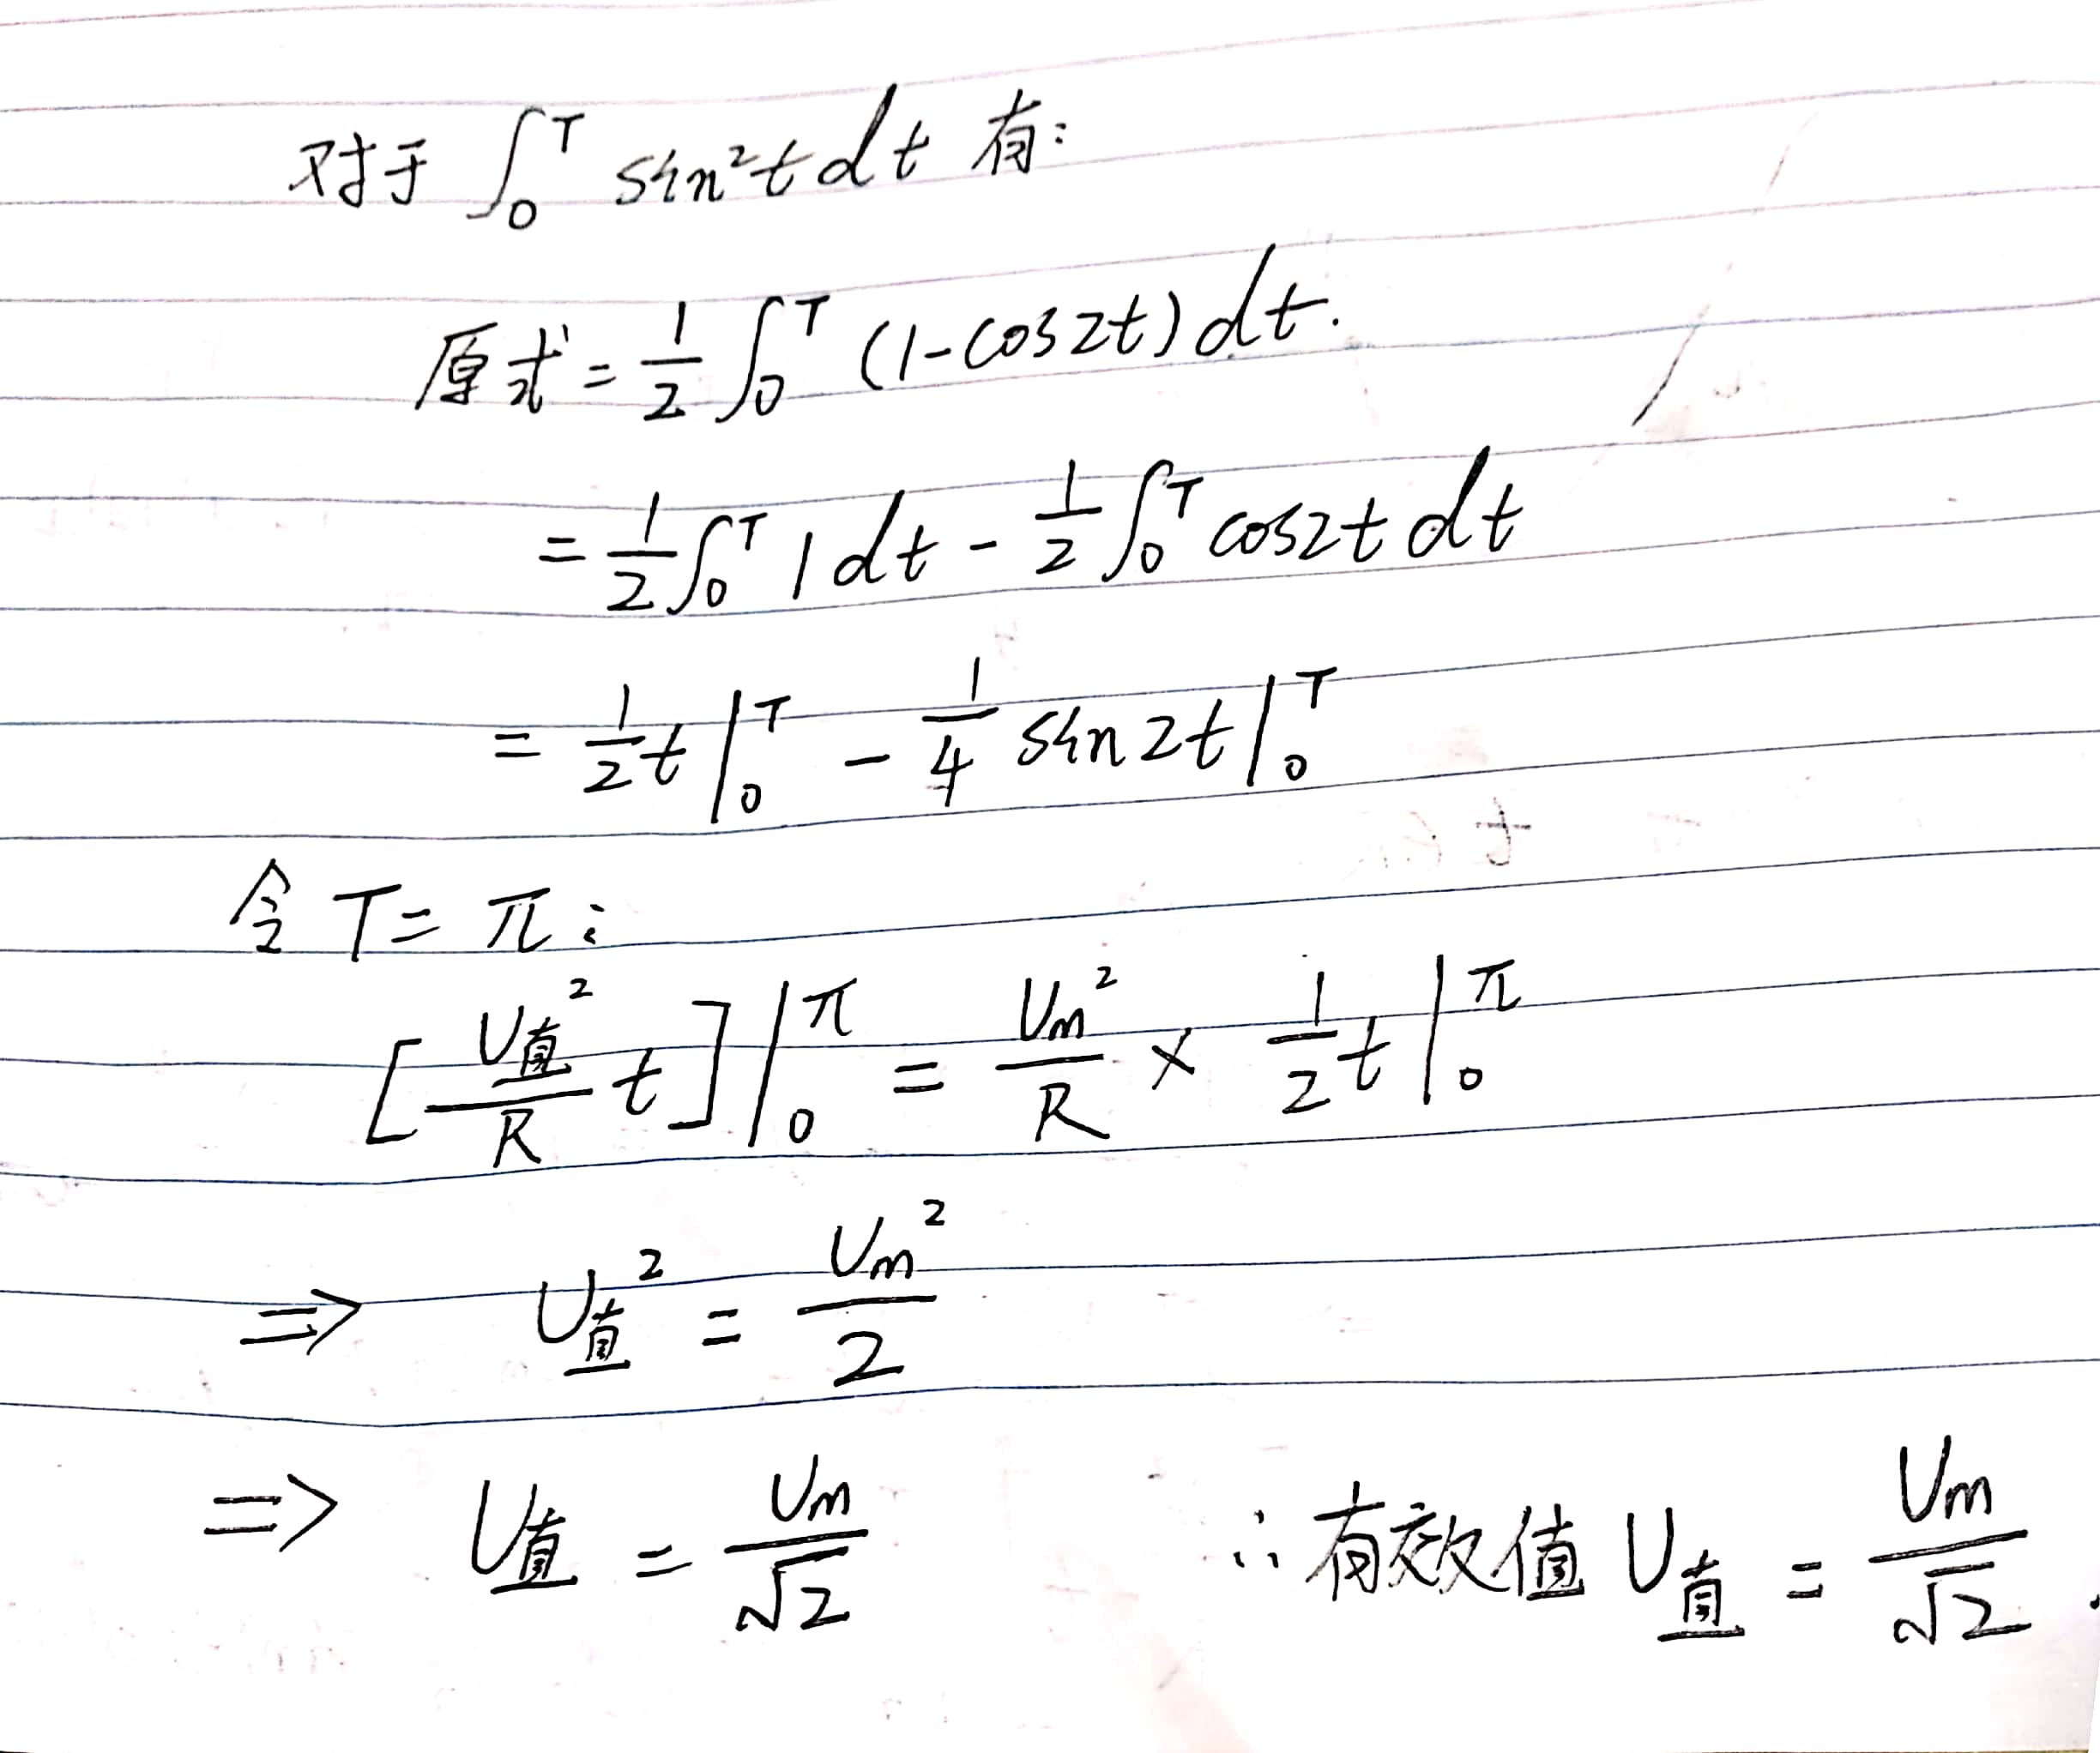 对于 ∫₀ᵀ sin²t dt 有:
原式 = 1/2 ∫₀ᵀ (1-cos2t) dt.
= 1/2 ∫₀ᵀ 1 dt - 1/2 ∫₀ᵀ cos2t dt
= 1/2 t |₀ᵀ - 1/4 sin2t |₀ᵀ
令 T = π:
[U直²/R t] |₀^π = Um²/R × 1/2 t |₀^π
⇒ U直² = Um²/2
⇒ U直 = Um/√2 ∴ 有效值 U直 = Um/√2.